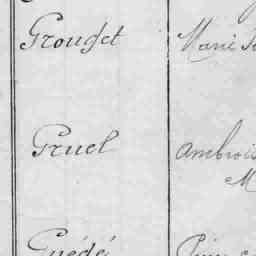 Grouget Marie
Gruel Ambrois
M
Guédé